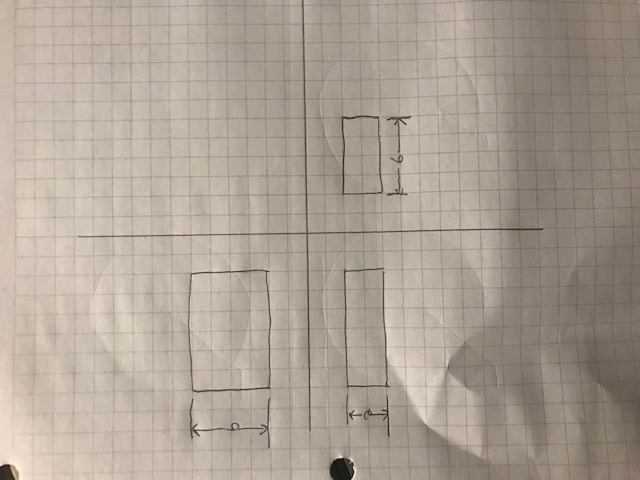 6
3
6